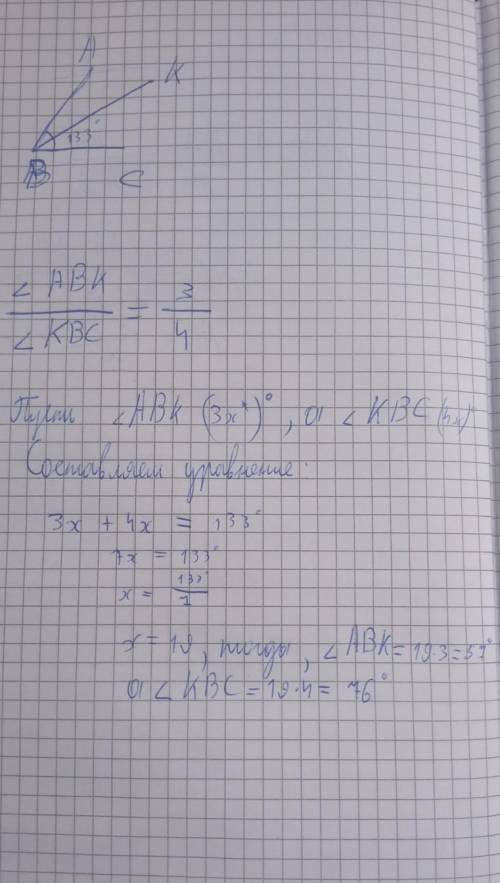 A
K
133°
B
C
∠ ABK
∠ KBC
= 3
4
Пусть ∠ABK (3x)°, а ∠KBC (4x)
Составляем уравнение:
3x + 4x = 133°
7x = 133°
x = 133°
7
x = 19, тогда, ∠ABK = 19·3 = 57°
а ∠KBC = 19·4 = 76°